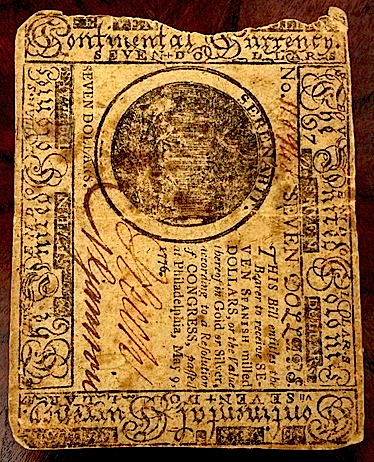 Continental Currency.
SEVEN DOLLARS
The United Colonies
No.
SEVEN DOLLARS
SERENABIT.
SEVEN DOLLARS.
THIS Bill entitles the
Bearer to receive SE-
VEN SPANISH milled
DOLLARS, or the Value
thereof in Gold or Silver,
according to a Resolution
of CONGRESS, passed
at Philadelphia, May 9,
1776.
The United Colonies
SEVEN DOLLARS
Continental Currency